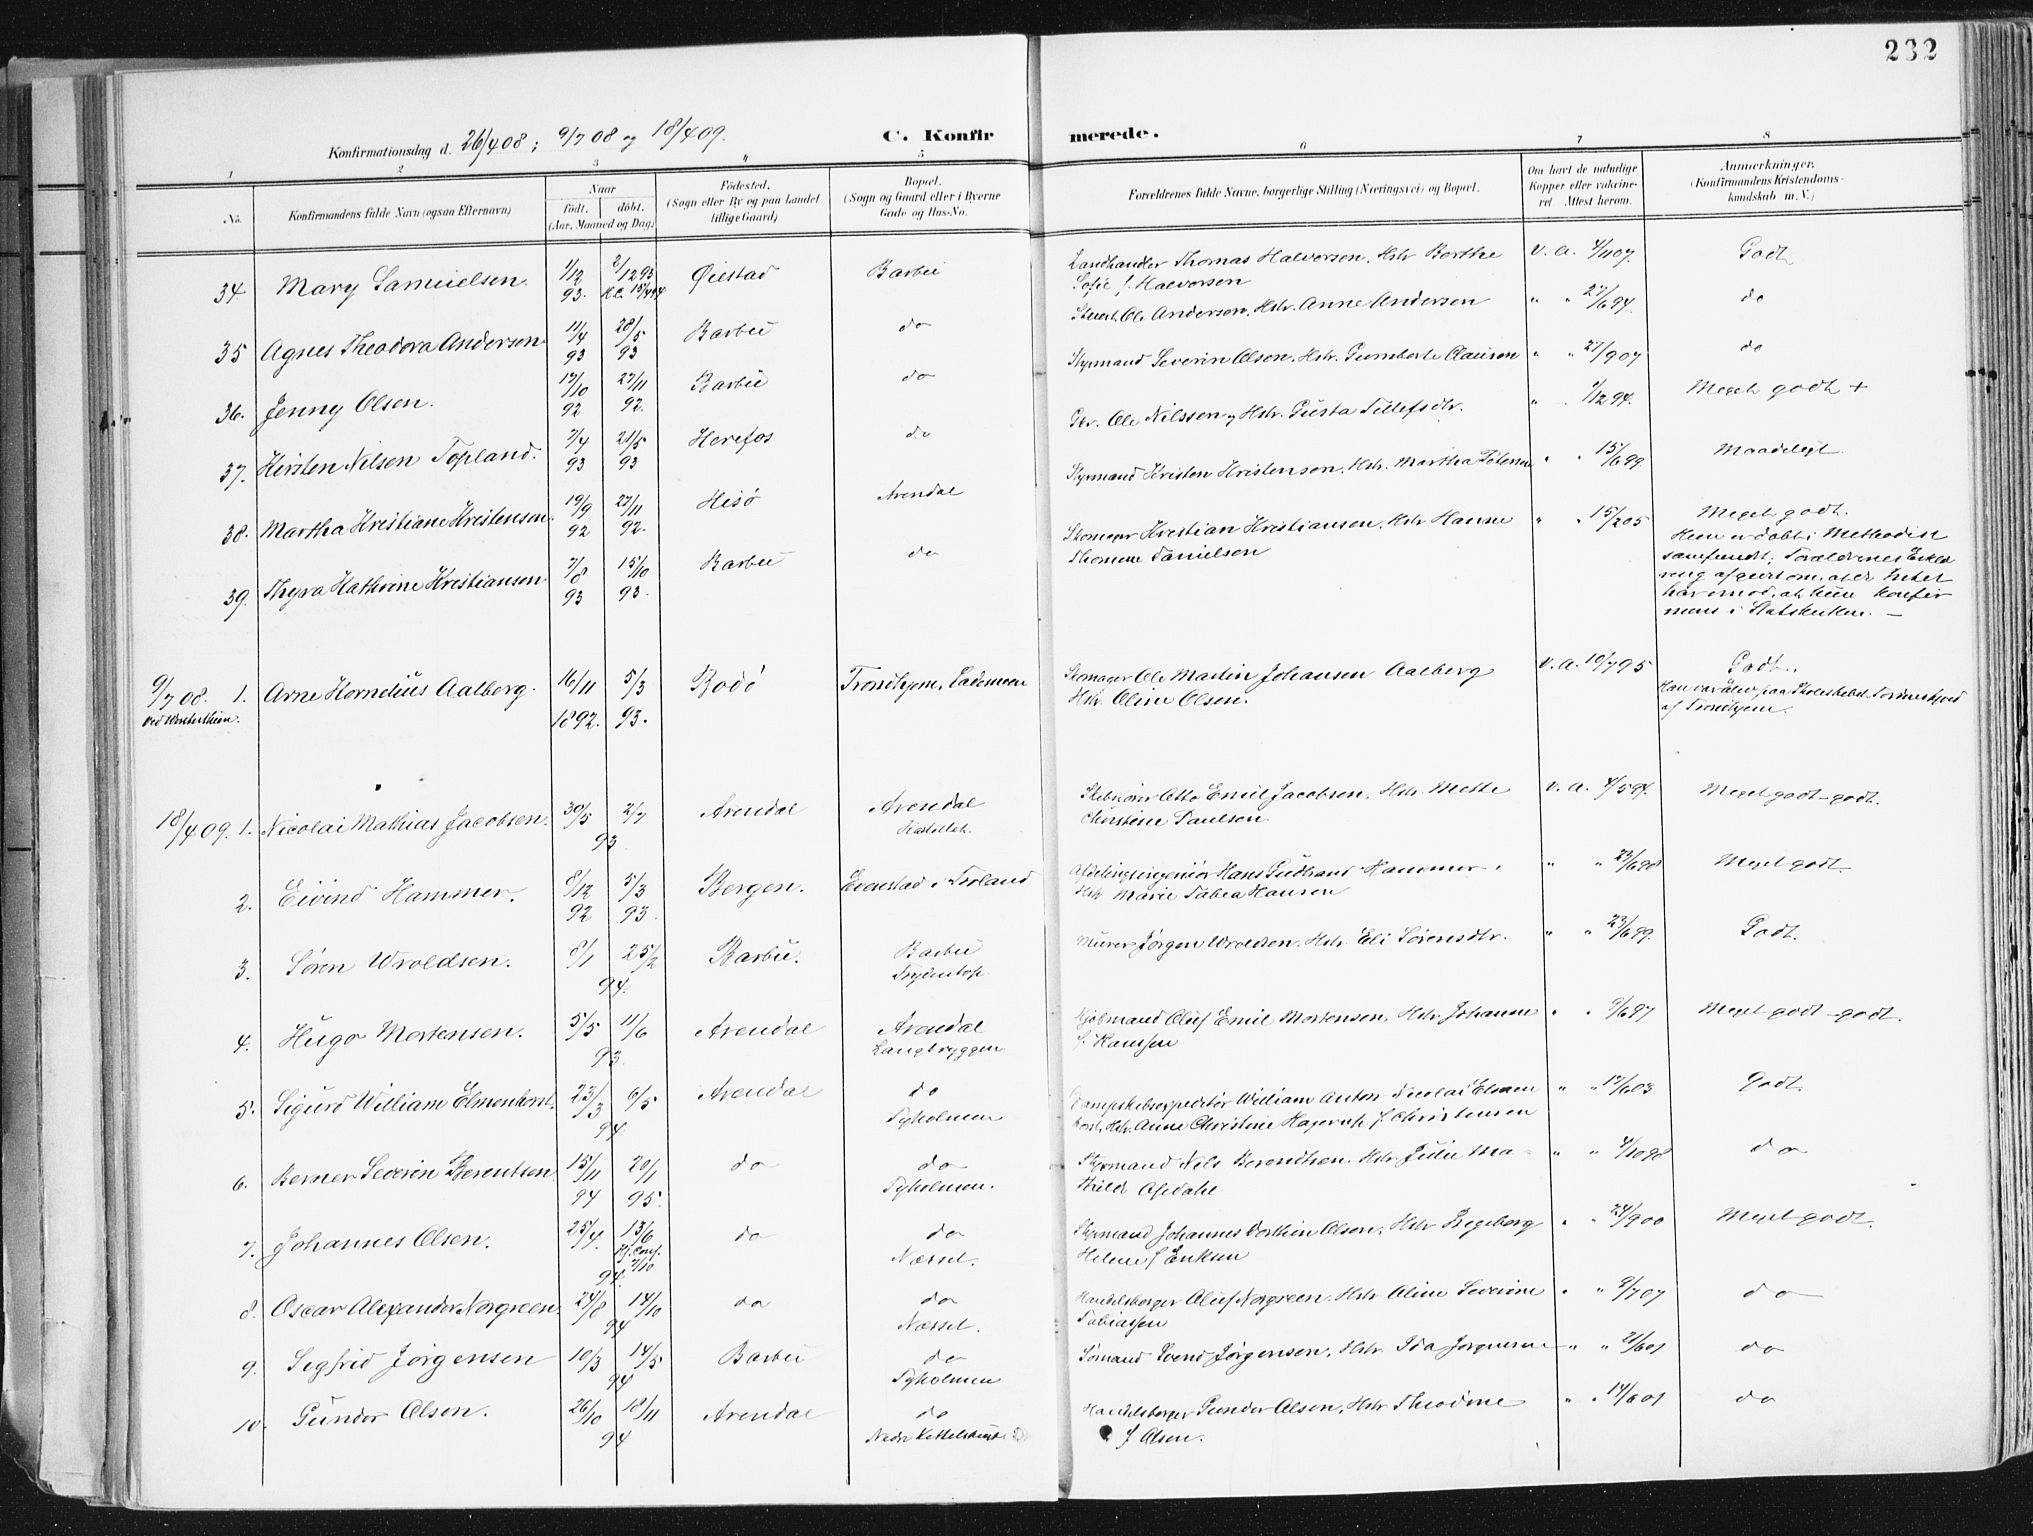 232
Konfirmationsdag d. 26/4 08; 9/7 08 og 18/4 09.
C. Konfirmerede.
1 2 3 4 5 6 7 8
No.
Konfirmandens fulde Navn (ogsaa Efternavn)
Naar
født. døbt.
(Aar, Maaned og Dag)
Fødested.
(Sogn eller By og paa Landet
tillige Gaard)
Bopæl.
(Sogn og Gaard eller i Byerne
Gade og Hus-No.
Forældrenes fulde Navne, borgerlige Stilling (Næringsvei) og Bopæl.
Om havt de naturlige
Kopper eller vakcine-
ret Attest herom.
Anmærkninger.
(Konfirmandens Kristendoms-
kundskab m. V.)
34 Mary Samuelsen. 1/12 93. 2/12 93 Øiestad Barbu Landhandler Thomas Halvorsen, Hstr Berthe
Sofie f. Halvorsen v. a. 4/1 07. Godt
35 Agnes Theodora Andersen 11/4 93 28/5 93 Barbu do Stuert Ole Andersen, Hstr. Anne Andersen " " 27/6 94. do
36. Jenny Olsen. 13/10 92 27/11 92. Barbu do Styrmand Severin Olsen, Hstr. Gunborte Clausen " " 27/9 07 do
37. Kirsten Nilsen Topland. 7/4 93 21/5 93 Herefos do Gbr. Ole Nilssen og Hstr. Gusta Tellefsdtr. " " 1/12 94. Meget godt +
38. Martha Kristiane Kristensen. 19/9 92 27/11 92. Hisø Arendal Styrmand Kristen Kristensen, Hstr. Martha Petersen " " 15/6 99. Maadeligt
39. Thyra Kathrine Kristiansen 7/8 93 15/10 93. Barbu do Skomager Kristian Kristiansen, Hstr Hanne
Thomine Danielsen " " 15/2 05 Meget godt.
Hun er døbt i Methodist
samfundet; Forældrenes Erklæ
ring afgivet om, at de Intet
har imod, at hun konfir
meres i Statskirken. —
9/7 08. 1. Arne Kornelius Aalberg. 16/11 1892. 5/3 93. Bodø Trondhjem, Lademoen Skomager Ole Martin Johansen Aalberg
Hstr. Oline Olsen. v. a. 10/7 95 Godt.
Han var elev paa Skoleskibet Tordenskjold
af Trondhjem.
18/4 09. 1. Nicolai Mathias Jacobsen. 30/5 2/7 93. Arendal Arendal
Kastellet. Skibsfører Otto Emil Jacobsen, Hstr. Mette
Christine Paulsen v. a. 4/5 94. Meget godt – godt.
2. Eivind Hammer. 8/12 92 5/3 93. Bergen. Evenstad i Froland Afdelingsingeniør Hans Gudbrand Hammer,
Hstr Marie Tabea Hansen " " 23/6 98 Meget godt
3. Søren Wroldsen. 8/1 25/2 94. Barbu. Barbu Murer Jørgen Wroldsen, Hstr. Eli Sørensdtr. " " 23/6 99. Godt.
4. Hugo Mortensen. 5/5 11/6 93. Arendal Arendal
Langbryggen Kjøbmand Oluf Emil Mortensen, Hstr Johanne
f. Hansen " " 9/6 97 Meget godt – godt.
5. Sigurd William Elmenhorst. 23/3 6/5 94 Arendal do
Tyholmen Dampskibsexpeditør William Anton Nicolai Elmen
horst, Hstr. Anne Christine Hagerup f. Christensen " " 17/6 03 Godt.
6. Berner Severin Berentsen 15/11 94 20/1 95. do do
Tyholmen. Styrmand Nils Berendtsen, Hstr Julie Ma-
thilde " " 4/10 98 do
7. Johannes Olsen. 25/4. 13/6 94. do do
Næsset. Styrmand Johannes Olsen, Hstr Ingeborg
Helene f. Eriksen " " 24/9 00 Meget godt.
8. Oscar Alexander Norgreen. 24/8 14/10 94 do do
Næsset. Handelsborger Oluf Norgreen, Hstr Oline Severine
Tobiassen " " 9/7 07 do
9. Segfrid Jørgensen 10/3 14/5 94 Barbu do
Tyholmen Sømand Svend Jørgensen, Hstr Ida Jørgensen " " 21/6 01 do
10. Gunder Olsen. 26/10 18/11 94 Arendal do
Nedre Handelsborger Gunder Olsen, Hstr Theodine
f. Olsen. " " 14/6 01 do